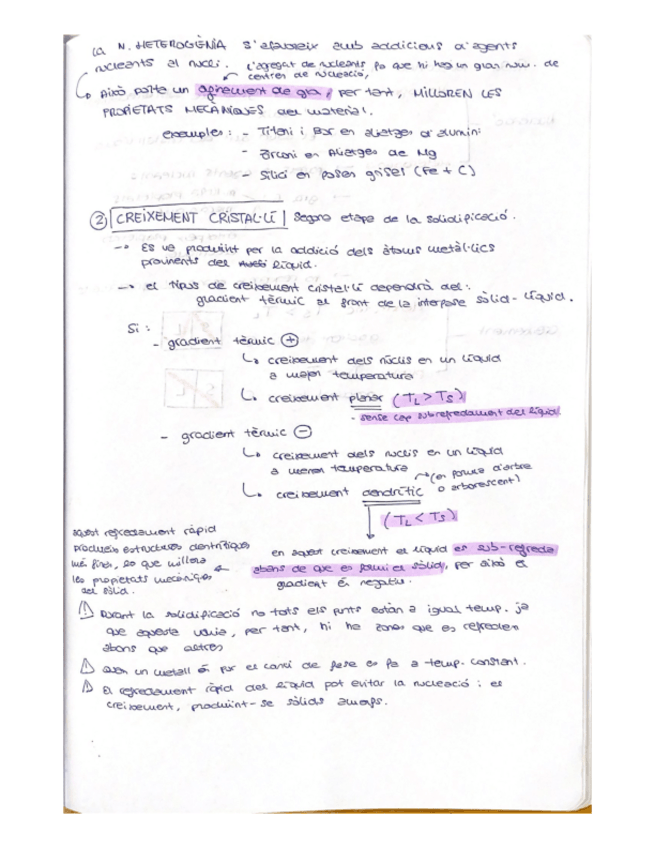 La N. HETEROGÈNIA s'afavoreix amb addicions d'agents
nucleants al nucli. L'agregat de nucleants fa que hi hagi un gran núm. de
centres de nucleació,
Això porta un afinament de gra, per tant, MILLOREN LES
PROPIETATS MECÀNIQUES del material.
exemples: - Titani i Bor en aliatges d'alumini
- Zirconi en Aliatges de Mg
- Silici en foses grises (Fe + C)
② CREIXEMENT CRISTAL·LÍ Segona etapa de la solidificació.
→ Es va produint per la addició dels àtoms metàl·lics
provinents del líquid.
→ el tipus de creixement cristal·lí dependrà del:
gradient tèrmic al front de la interfase sòlid-líquid.
Si:
- gradient tèrmic ⊕
↳ creixement dels nuclis en un líquid
a major temperatura
↳ creixement planar (TL > TS)
- sense cap subrefredament del líquid
- gradient tèrmic ⊖
↳ creixement dels nuclis en un líquid
a menor temperatura
↳ creixement dendrític (en forma d'arbre
o arborescent)
(TL < TS)
en aquest creixement el líquid es sub-refreda
abans de que es formi el sòlid, per això el
gradient és negatiu.
aquest refredament ràpid
produeix estructures dentrítiques
més fines, so que millora
les propietats mecàniques
del sòlid.
⚠ Durant la solidificació no tots els punts estàn a igual temp. ja
que aquesta varia, per tant, hi ha zones que es refreden
abans que altres
⚠ Quan un metall és pur el canvi de fase es fa a temp. constant.
⚠ El refredament ràpid del líquid pot evitar la nucleació i el
creixement, produint-se sòlids amorfs.